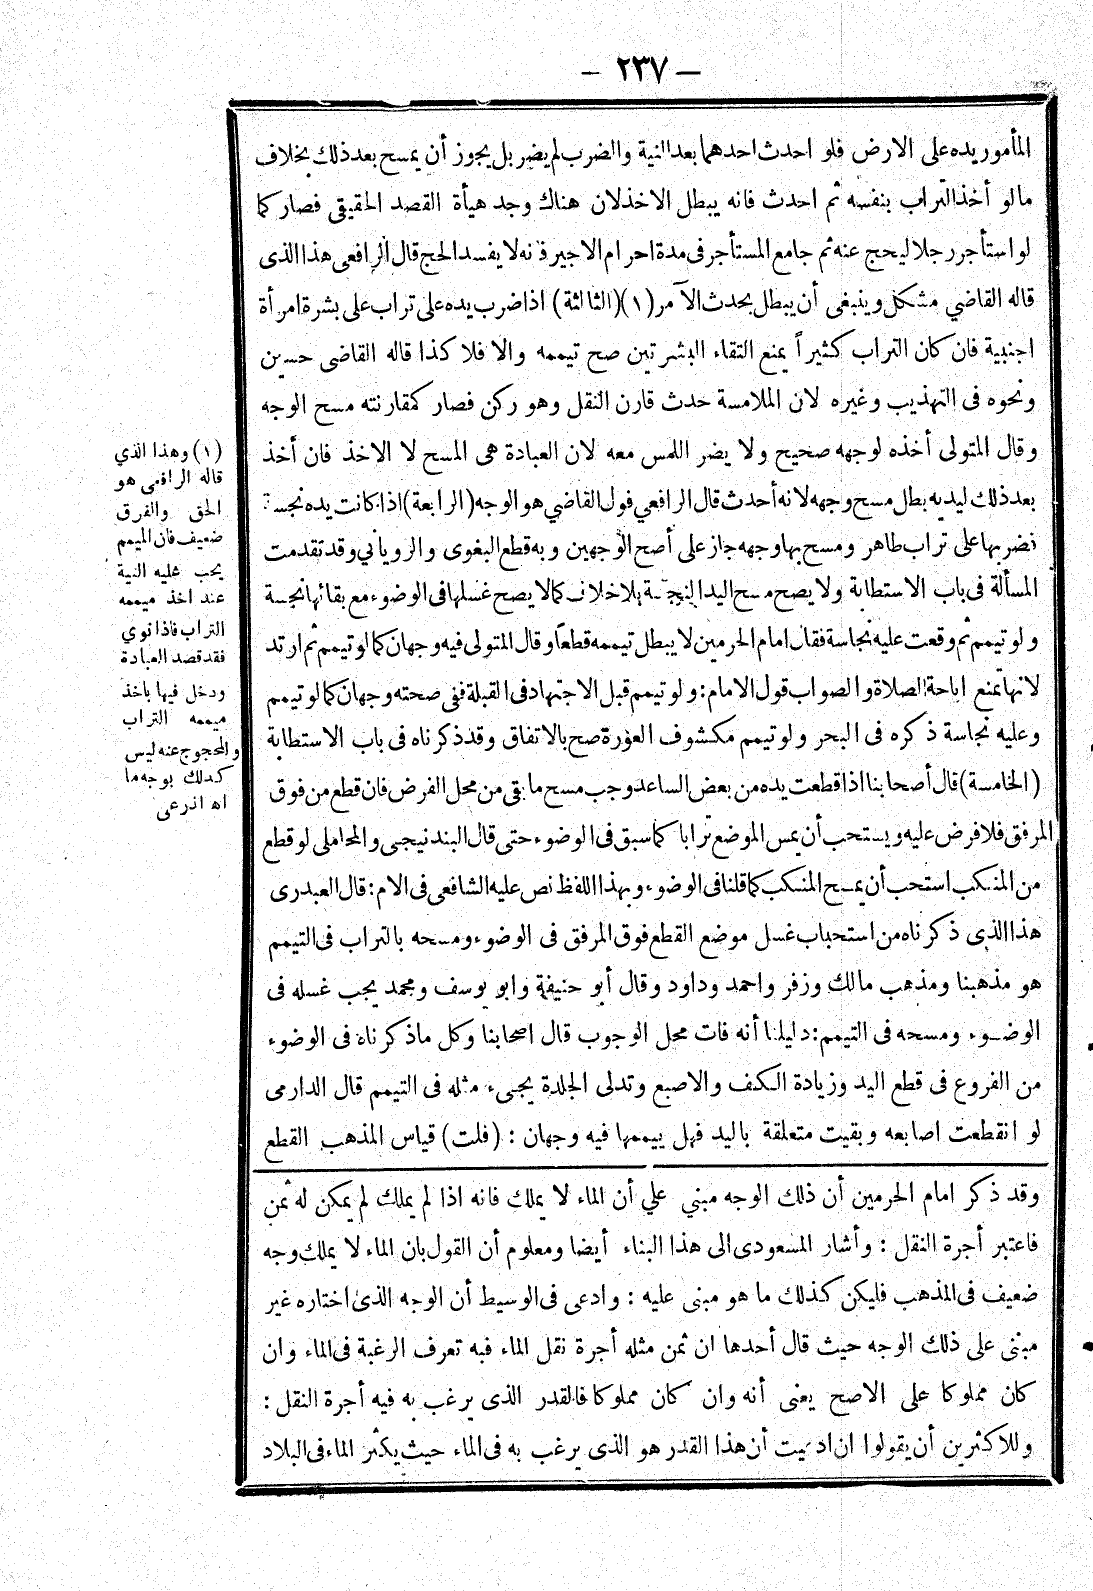 — ٢٣٧ —
المأمور يده على الارض فلو احدث احدهما بعد النية والضرب لم يضر بل يجوز أن يمسح بعد ذلك بخلاف
مالو أخذ التراب بنفسه ثم احدث فانه يبطل الاخذ لان هناك وجد هيأة القصد الحقيقى فصار كما
لو استأجر رجلا ليحج عنه ثم جامع المستأجر فى مدة احرام الاجير فانه لا يفسد الحج قال الرافعى هذا الذى
قاله القاضي مشكل وينبغى أن يبطل بحدث الآمر (١) (الثالثة) اذا ضرب يده على تراب على بشرة امرأة
اجنبية فان كان التراب كثيراً يمنع التقاء البشرتين صح تيممه والا فلا كذا قاله القاضى حسين
ونحوه فى التهذيب وغيره لان الملامسة حدث قارن النقل وهو ركن فصار كمقارنته مسح الوجه
وقال المتولى أخذه لوجهه صحيح ولا يضر اللمس معه لان العبادة هى المسح لا الاخذ فان أخذ
بعد ذلك ليديه بطل مسح وجهه لانه أحدث قال الرافعي قول القاضي هو الوجه (الرابعة) اذا كانت يده نجسة
فضربها على تراب طاهر ومسح بها وجهه جاز على أصح الوجهين وبه قطع البغوى والروياني وقد تقدمت
المسألة فى باب الاستطابة ولا يصح مسح اليد النجسة بلا خلاف كما لا يصح غسلها فى الوضوء مع بقائها نجسة
ولو تيمم ثم وقعت عليه نجاسة فقال امام الحرمين لا يبطل تيممه قطعاً وقال المتولى فيه وجهان كما لو تيمم ثم ارتد
لانها تمنع اباحة الصلاة والصواب قول الامام : ولو تيمم قبل الاجتهاد فى القبلة ففى صحته وجهان كما لو تيمم
وعليه نجاسة ذكره فى البحر ولو تيمم مكشوف العورة صح بالاتفاق وقد ذكرناه فى باب الاستطابة
(الخامسة) قال أصحابنا اذا قطعت يده من بعض الساعد وجب مسح ما بقى من محل الفرض فان قطع من فوق
المرفق فلا فرض عليه ويستحب أن يمس الموضع ترابا كما سبق فى الوضوء حتى قال البندنيجى والمحاملى لو قطع
من المنكب استحب أن يمسح المنكب كما قلنا فى الوضوء وبهذا اللفظ نص عليه الشافعى فى الام : قال العبدرى
هذا الذى ذكرناه من استحباب غسل موضع القطع فوق المرفق فى الوضوء ومسحه بالتراب فى التيمم
هو مذهبنا ومذهب مالك وزفر واحمد وداود وقال أبو حنيفة وابو يوسف ومحمد يجب غسله فى
الوضوء ومسحه فى التيمم : دليلنا أنه فات محل الوجوب قال اصحابنا وكل ماذكرناه فى الوضوء
من الفروع فى قطع اليد وزيادة الكف والاصبع وتدلى الجلدة يجىء مثله فى التيمم قال الدارمى
لو انقطعت اصابعه وبقيت متعلقة باليد فهل ييممها فيه وجهان : (قلت) قياس المذهب القطع
وقد ذكر امام الحرمين أن ذلك الوجه مبني علي أن الماء لا يملك فانه اذا لم يملك لم يمكن له ثمن
فاعتبر أجرة النقل : وأشار المسعودى الى هذا البناء أيضا ومعلوم أن القول بان الماء لا يملك وجه
ضعيف فى المذهب فليكن كذلك ما هو مبنى عليه : وادعى فى الوسيط أن الوجه الذى اختاره غير
مبنى على ذلك الوجه حيث قال أحدها ان ثمن مثله أجرة نقل الماء فبه تعرف الرغبة فى الماء وان
كان مملوكا على الاصح يعنى أنه وان كان مملوكا فالقدر الذى يرغب به فيه أجرة النقل :
وللاكثرين أن يقولوا ان ادعيت أن هذا القدر هو الذى يرغب به فى الماء حيث يكثر الماء فى البلاد
(١) وهذا الذي
قاله الرافعى هو
الحق والفرق
ضعيف فان الميمم
يجب عليه النية
عند اخذ ميممه
التراب فاذا نوي
فقد قصد العبادة
ودخل فيها باخذ
ميممه التراب
والمحجوج عنه ليس
كذلك بوجه ما
اه اذرعى